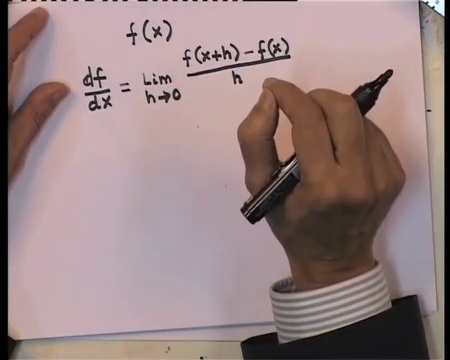 f(x)
df/dx = Lim h→0 f(x+h) - f(x)/h